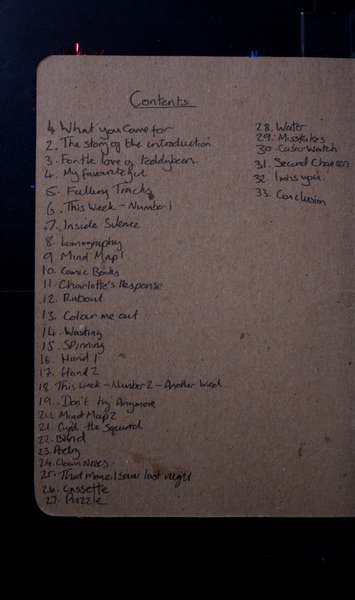 Contents
1. What you Came for
2. The story of the introduction
3. For the love of teddybears.
4. My favourite
5. Falling Tracks
6. This Week - Number 1
7. Inside Silence
8. Lomography
9. Mind Map 1
10. Comic Books
11. Charlotte's Response
12. Rubout
13. Colour me out
14. Wasting
15. Spinning
16. Hand 1
17. Hand 2
18. This week - Number 2 - Another Week.
19. Don't try Anymore
20. Mind Map 2
21. Cyril the Squirrel
22. Band
23. Poetry
24. Clown Noses.
25. That movie I saw last night
26. Cassette
27. Puzzle
28. Water
29. Misstakes
30. Watch
31. Second Chances
32. I miss you.
33. Conclusion